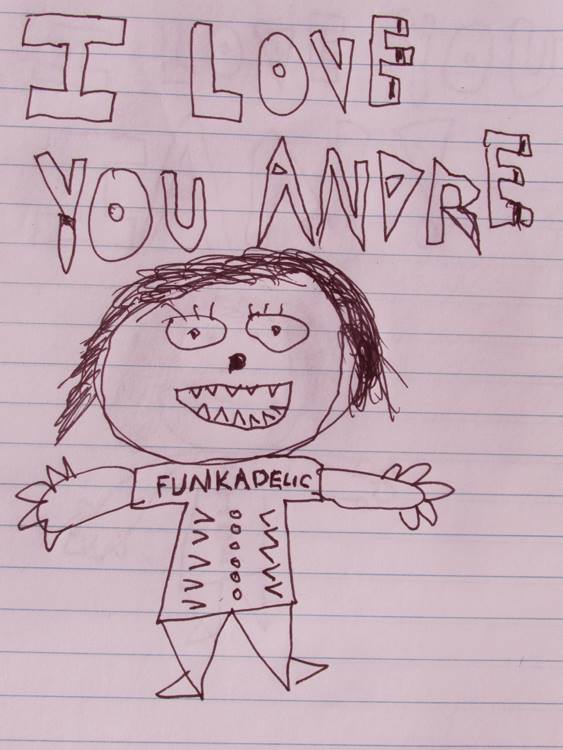 I LOVE
YOU ANDRE
FUNKADELIC